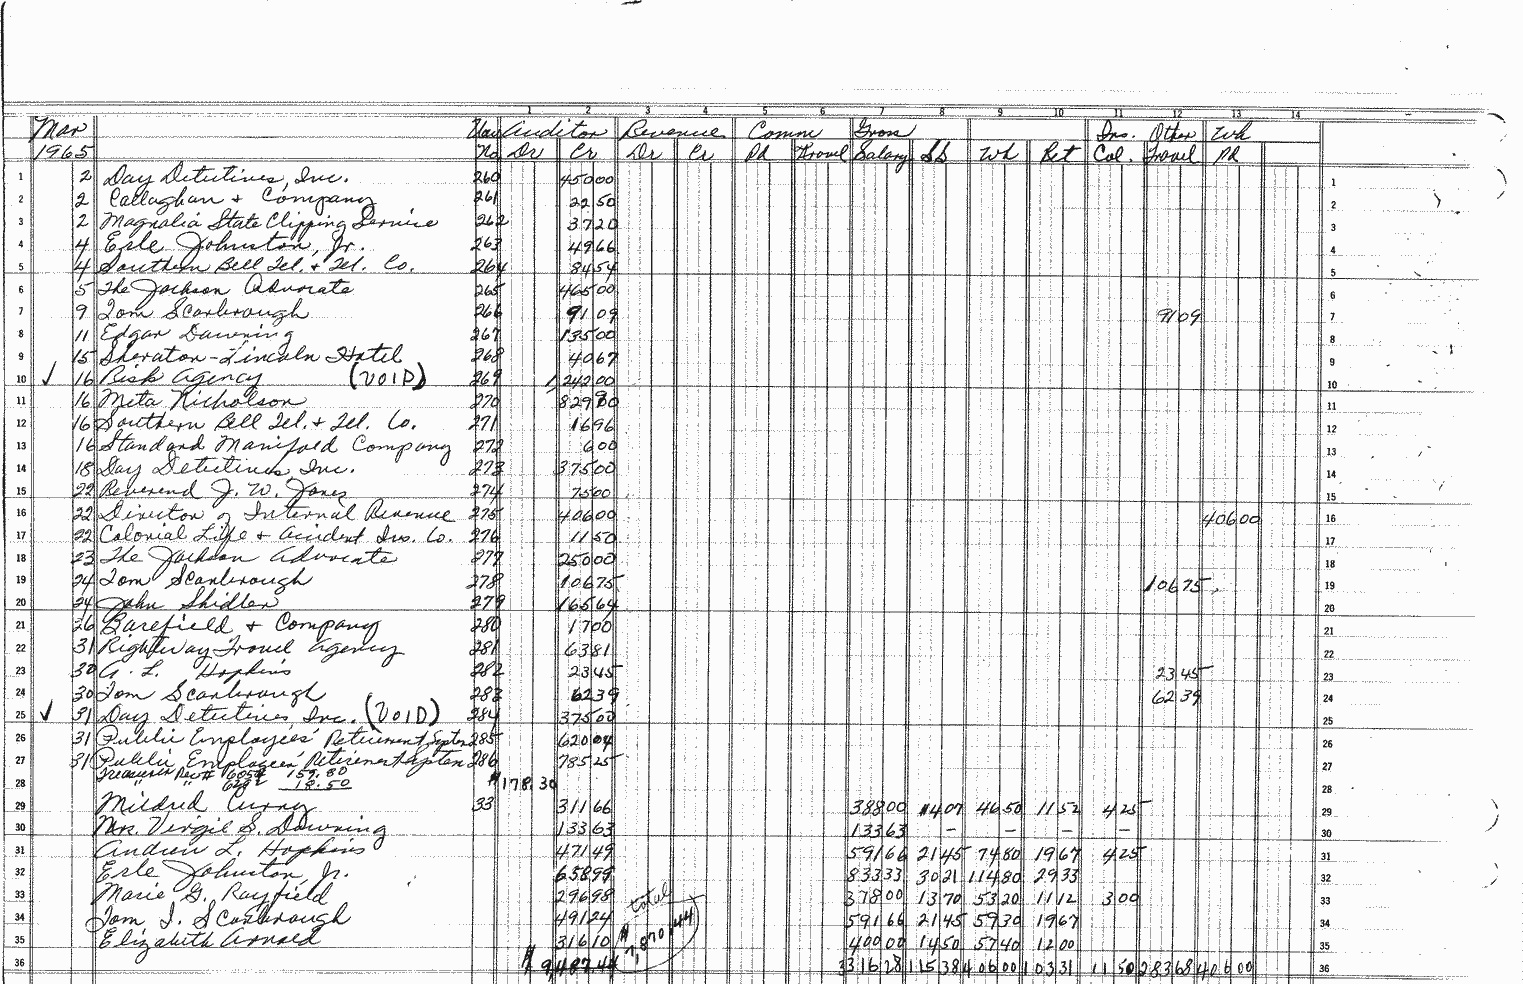 1 2 3 4 5 6 7 8 9 10 11 12 13 14
Mar Auditor Revenue Comm Gross Ins. Other Wh
1965 No Dr Cr Dr Cr Pd Travel Salary SS Wh Ret Col. Travel Pd
1 2 Day Detectives, Inc. 260 450 00 1
2 2 Callaghan & Company 261 22 50 2
3 2 Magnolia State Clipping Service 262 37 20 3
4 4 Erle Johnston, Jr. 263 49 66 4
5 4 Southern Bell Tel. & Tel. Co. 264 84 54 5
6 5 The Jackson Advocate 265 465 00 6
7 9 Tom Scarbrough 266 91 09 91 09 7
8 11 Edgar Downing 267 135 00 8
9 15 Sheraton-Lincoln Hotel 268 40 67 9
10 ✓ 16 Risk Agency (VOID) 269 1,242 00 10
11 16 Meta Nicholson 270 11
12 16 Southern Bell Tel. & Tel. Co. 271 16 96 12
13 16 Standard Manifold Company 272 6 00 13
14 18 Day Detectives, Inc. 273 375 00 14
15 22 Reverend J. W. Jones 274 75 00 15
16 22 Director of Internal Revenue 275 406 00 406 00 16
17 22 Colonial Life & Accident Ins. Co. 276 11 50 17
18 23 The Jackson Advocate 277 250 00 18
19 24 Tom Scarbrough 278 106 75 106 75 19
20 24 John Shidler 279 165 64 20
21 26 Barefield & Company 280 17 00 21
22 31 Rightway Travel Agency 281 63 81 22
23 30 A. L. Hopkins 282 23 45 23 45 23
24 30 Tom Scarbrough 283 62 39 62 39 24
25 ✓ 31 Day Detectives, Inc. (VOID) 284 375 00 25
26 31 Public Employees' Retirement System 285 620 04 26
27 31 Public Employees' Retirement System 286 785 25 27
Treasurer's Rec# 159.80
28 " " 18.50 $178.30 28
29 Mildred Curry 33 311 66 388 00 14 07 46 50 11 52 4 25 29
30 Mrs. Virgil S. Downing 133 63 133 63 – – – – 30
31 Andrew L. Hopkins 471 49 591 66 21 45 74 80 19 67 4 25 31
32 Erle Johnston, Jr. 658 99 833 33 30 21 114 80 29 33 32
33 Marie G. Rayfield 296 98 378 00 13 70 53 20 11 12 3 00 33
34 Tom J. Scarbrough 491 24 591 66 21 45 59 30 19 67 34
35 Elizabeth Arnold 316 10 400 00 14 50 57 40 12 00 35
total
$7,870.44
36 $9,487.44 3316 28 115 38 406 00 103 31 11 50 283 68 406 00 36